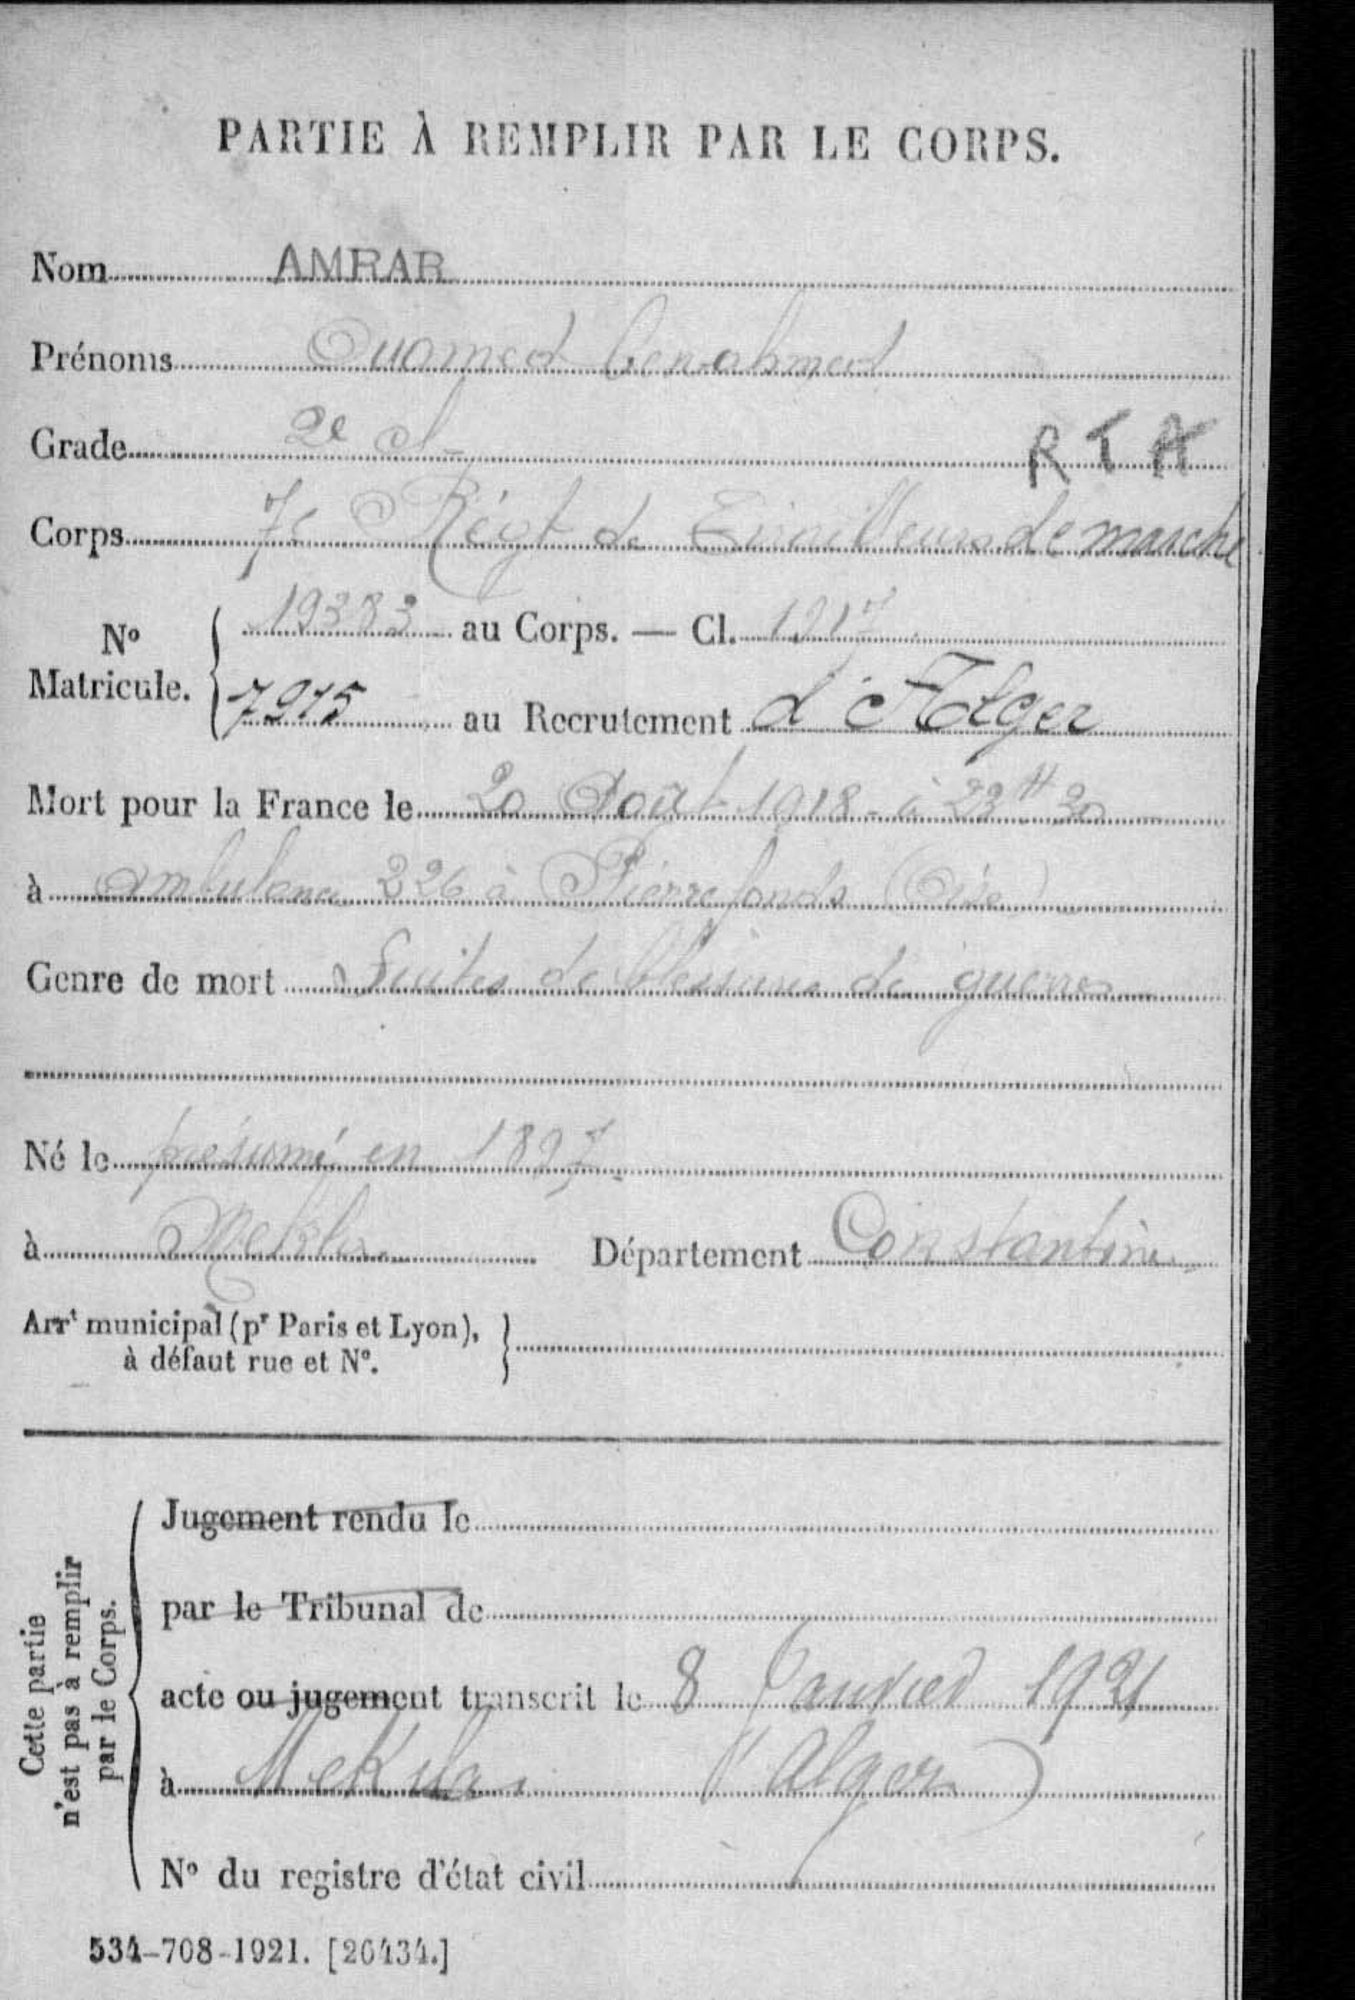 PARTIE À REMPLIR PAR LE CORPS.
Nom AMRAR
Prénoms Ouamed ben ahmed
Grade 2e cl
R T A
Corps 7e Régt de Tirailleurs de marche
No Matricule. 19383 au Corps. — Cl. 1917
7915 au Recrutement d'Alger
Mort pour la France le 20 Août 1918 - à 23 H 30
à ambulance 226 à Pierrefonds (Oise)
Genre de mort Suites de blessures de guerre
Né le présumé en 1897
à Mekla Département Constantine
Arrt municipal (pr Paris et Lyon),
à défaut rue et No.
Cette partie
n'est pas à remplir
par le Corps.
Jugement rendu le
par le Tribunal de
acte ou jugement transcrit le 8 Janvier 1921
à Mekla (Alger)
No du registre d'état civil
534-708-1921. [26434.]